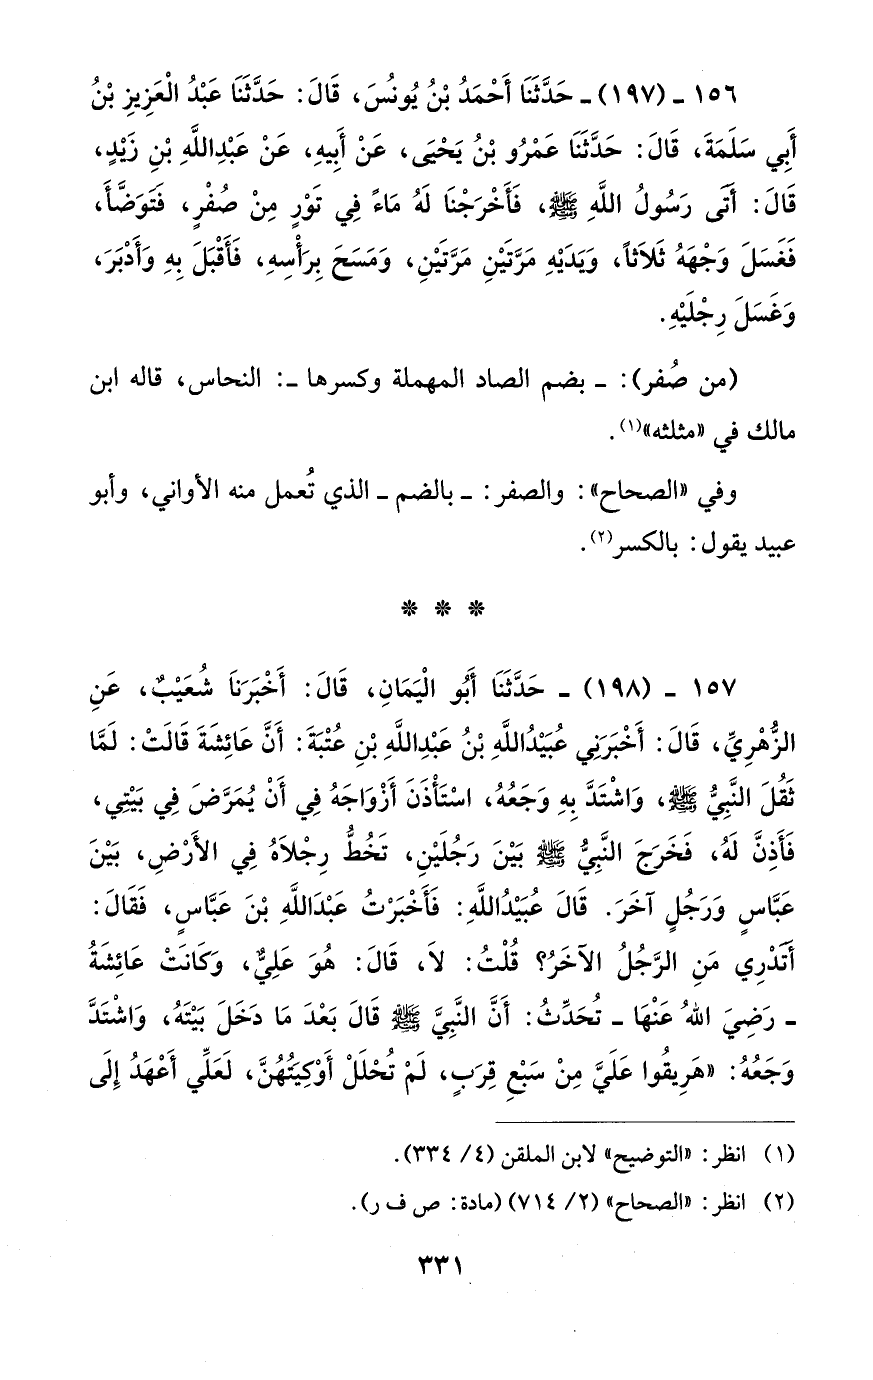 ١٥٦ ـ (١٩٧) ـ حَدَّثَنَا أَحْمَدُ بْنُ يُونُسَ، قَالَ: حَدَّثَنَا عَبْدُ الْعَزِيزِ بْنُ
أَبِي سَلَمَةَ، قَالَ: حَدَّثَنَا عَمْرُو بْنُ يَحْيَى، عَنْ أَبِيهِ، عَنْ عَبْدِاللَّهِ بْنِ زَيْدٍ،
قَالَ: أَتَى رَسُولُ اللَّهِ ﷺ، فَأَخْرَجْنَا لَهُ مَاءً فِي تَوْرٍ مِنْ صُفْرٍ، فَتَوَضَّأَ،
فَغَسَلَ وَجْهَهُ ثَلَاثاً، وَيَدَيْهِ مَرَّتَيْنِ مَرَّتَيْنِ، وَمَسَحَ بِرَأْسِهِ، فَأَقْبَلَ بِهِ وَأَدْبَرَ،
وَغَسَلَ رِجْلَيْهِ.
(من صُفر): ـ بضم الصاد المهملة وكسرها ـ: النحاس، قاله ابن
مالك في «مثلثه»(١).
وفي «الصحاح»: والصفر: ـ بالضم ـ الذي تُعمل منه الأواني، وأبو
عبيد يقول: بالكسر(٢).
* * *
١٥٧ ـ (١٩٨) ـ حَدَّثَنَا أَبُو الْيَمَانِ، قَالَ: أَخْبَرَنَا شُعَيْبٌ، عَنِ
الزُّهْرِيِّ، قَالَ: أَخْبَرَنِي عُبَيْدُاللَّهِ بْنُ عَبْدِاللَّهِ بْنِ عُتْبَةَ: أَنَّ عَائِشَةَ قَالَتْ: لَمَّا
ثَقُلَ النَّبِيُّ ﷺ، وَاشْتَدَّ بِهِ وَجَعُهُ، اسْتَأْذَنَ أَزْوَاجَهُ فِي أَنْ يُمَرَّضَ فِي بَيْتِي،
فَأَذِنَّ لَهُ، فَخَرَجَ النَّبِيُّ ﷺ بَيْنَ رَجُلَيْنِ، تَخُطُّ رِجْلَاهُ فِي الأَرْضِ، بَيْنَ
عَبَّاسٍ وَرَجُلٍ آخَرَ. قَالَ عُبَيْدُاللَّهِ: فَأَخْبَرْتُ عَبْدَاللَّهِ بْنَ عَبَّاسٍ، فَقَالَ:
أَتَدْرِي مَنِ الرَّجُلُ الآخَرُ؟ قُلْتُ: لاَ، قَالَ: هُوَ عَلِيٌّ، وَكَانَتْ عَائِشَةُ
ـ رَضِيَ اللهُ عَنْهَا ـ تُحَدِّثُ: أَنَّ النَّبِيَّ ﷺ قَالَ بَعْدَ مَا دَخَلَ بَيْتَهُ، وَاشْتَدَّ
وَجَعُهُ: «هَرِيقُوا عَلَيَّ مِنْ سَبْعِ قِرَبٍ، لَمْ تُحْلَلْ أَوْكِيَتُهُنَّ، لَعَلِّي أَعْهَدُ إِلَى
(١) انظر: «التوضيح» لابن الملقن (٤/ ٣٣٤).
(٢) انظر: «الصحاح» (٢/ ٧١٤) (مادة: ص ف ر).
٣٣١